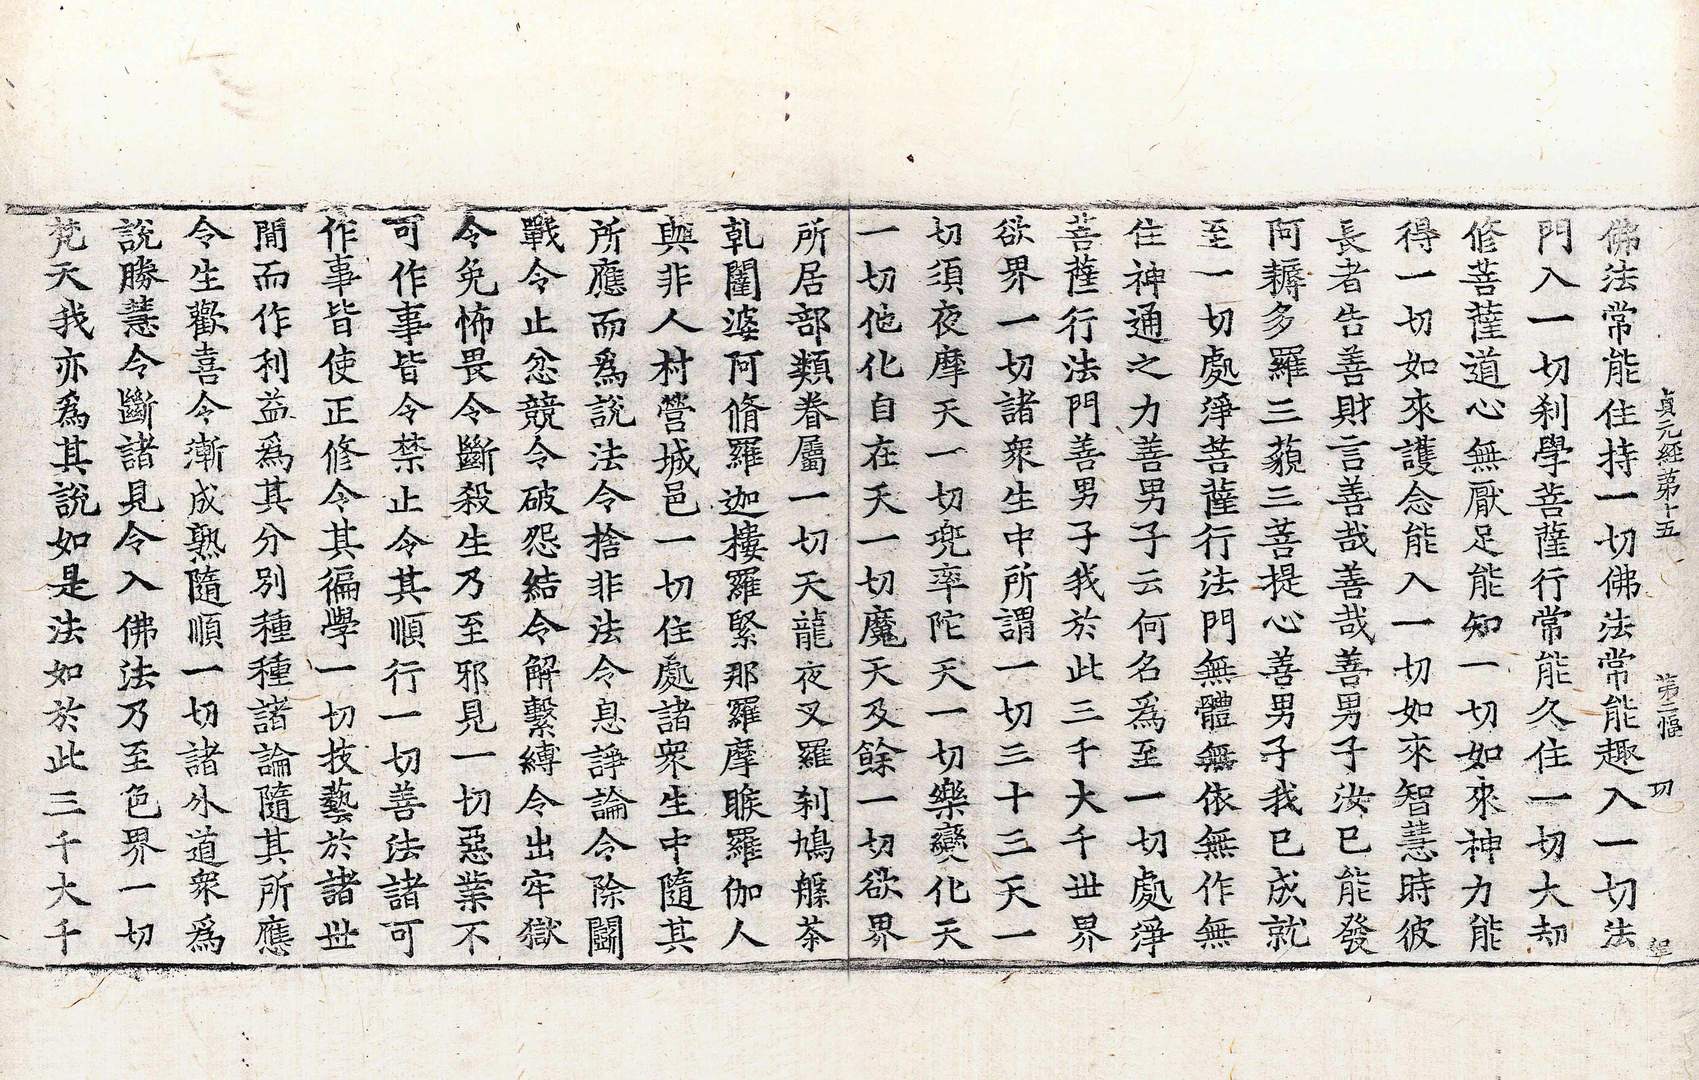 貞元經第十五 第二幅 切
佛法常能住持一切佛法常能趣入一切法
門入一切刹學菩薩行常能久住一切大劫
修菩薩道心無厭足能知一切如來神力能
得一切如來護念能入一切如來智慧時彼
長者告善財言善哉善哉善男子汝已能發
阿耨多羅三藐三菩提心善男子我已成就
至一切處淨菩薩行法門無體無依無作無
住神通之力善男子云何名爲至一切處淨
菩薩行法門善男子我於此三千大千世界
欲界一切諸衆生中所謂一切三十三天一
切須夜摩天一切兜率陀天一切樂變化天
一切他化自在天一切魔天及餘一切欲界
所居部類眷屬一切天龍夜叉羅刹鳩槃茶
乹闥婆阿脩羅迦樓羅緊那羅摩睺羅伽人
與非人村營城邑一切住處諸衆生中隨其
所應而爲說法令捨非法令息諍論令除鬪
戰令止忿競令破怨結令解繫縛令出牢獄
令免怖畏令斷殺生乃至邪見一切惡業不
可作事皆令禁止令其順行一切善法諸可
作事皆使正修令其徧學一切技藝於諸世
閒而作利益爲其分別種種諸論隨其所應
令生歡喜令漸成熟隨順一切諸外道衆爲
說勝慧令斷諸見令入佛法乃至色界一切
梵天我亦爲其說如是法如於此三千大千